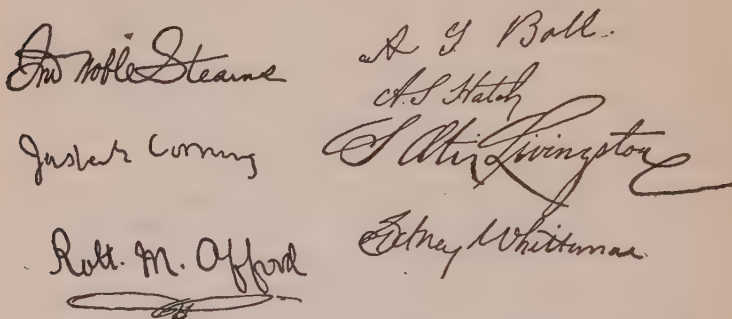 Jno Noble Stearns
Corning
Robt. M. Offord
A G Ball.
A. S Hatch
S Otis Livingston
Sidney Whittemore